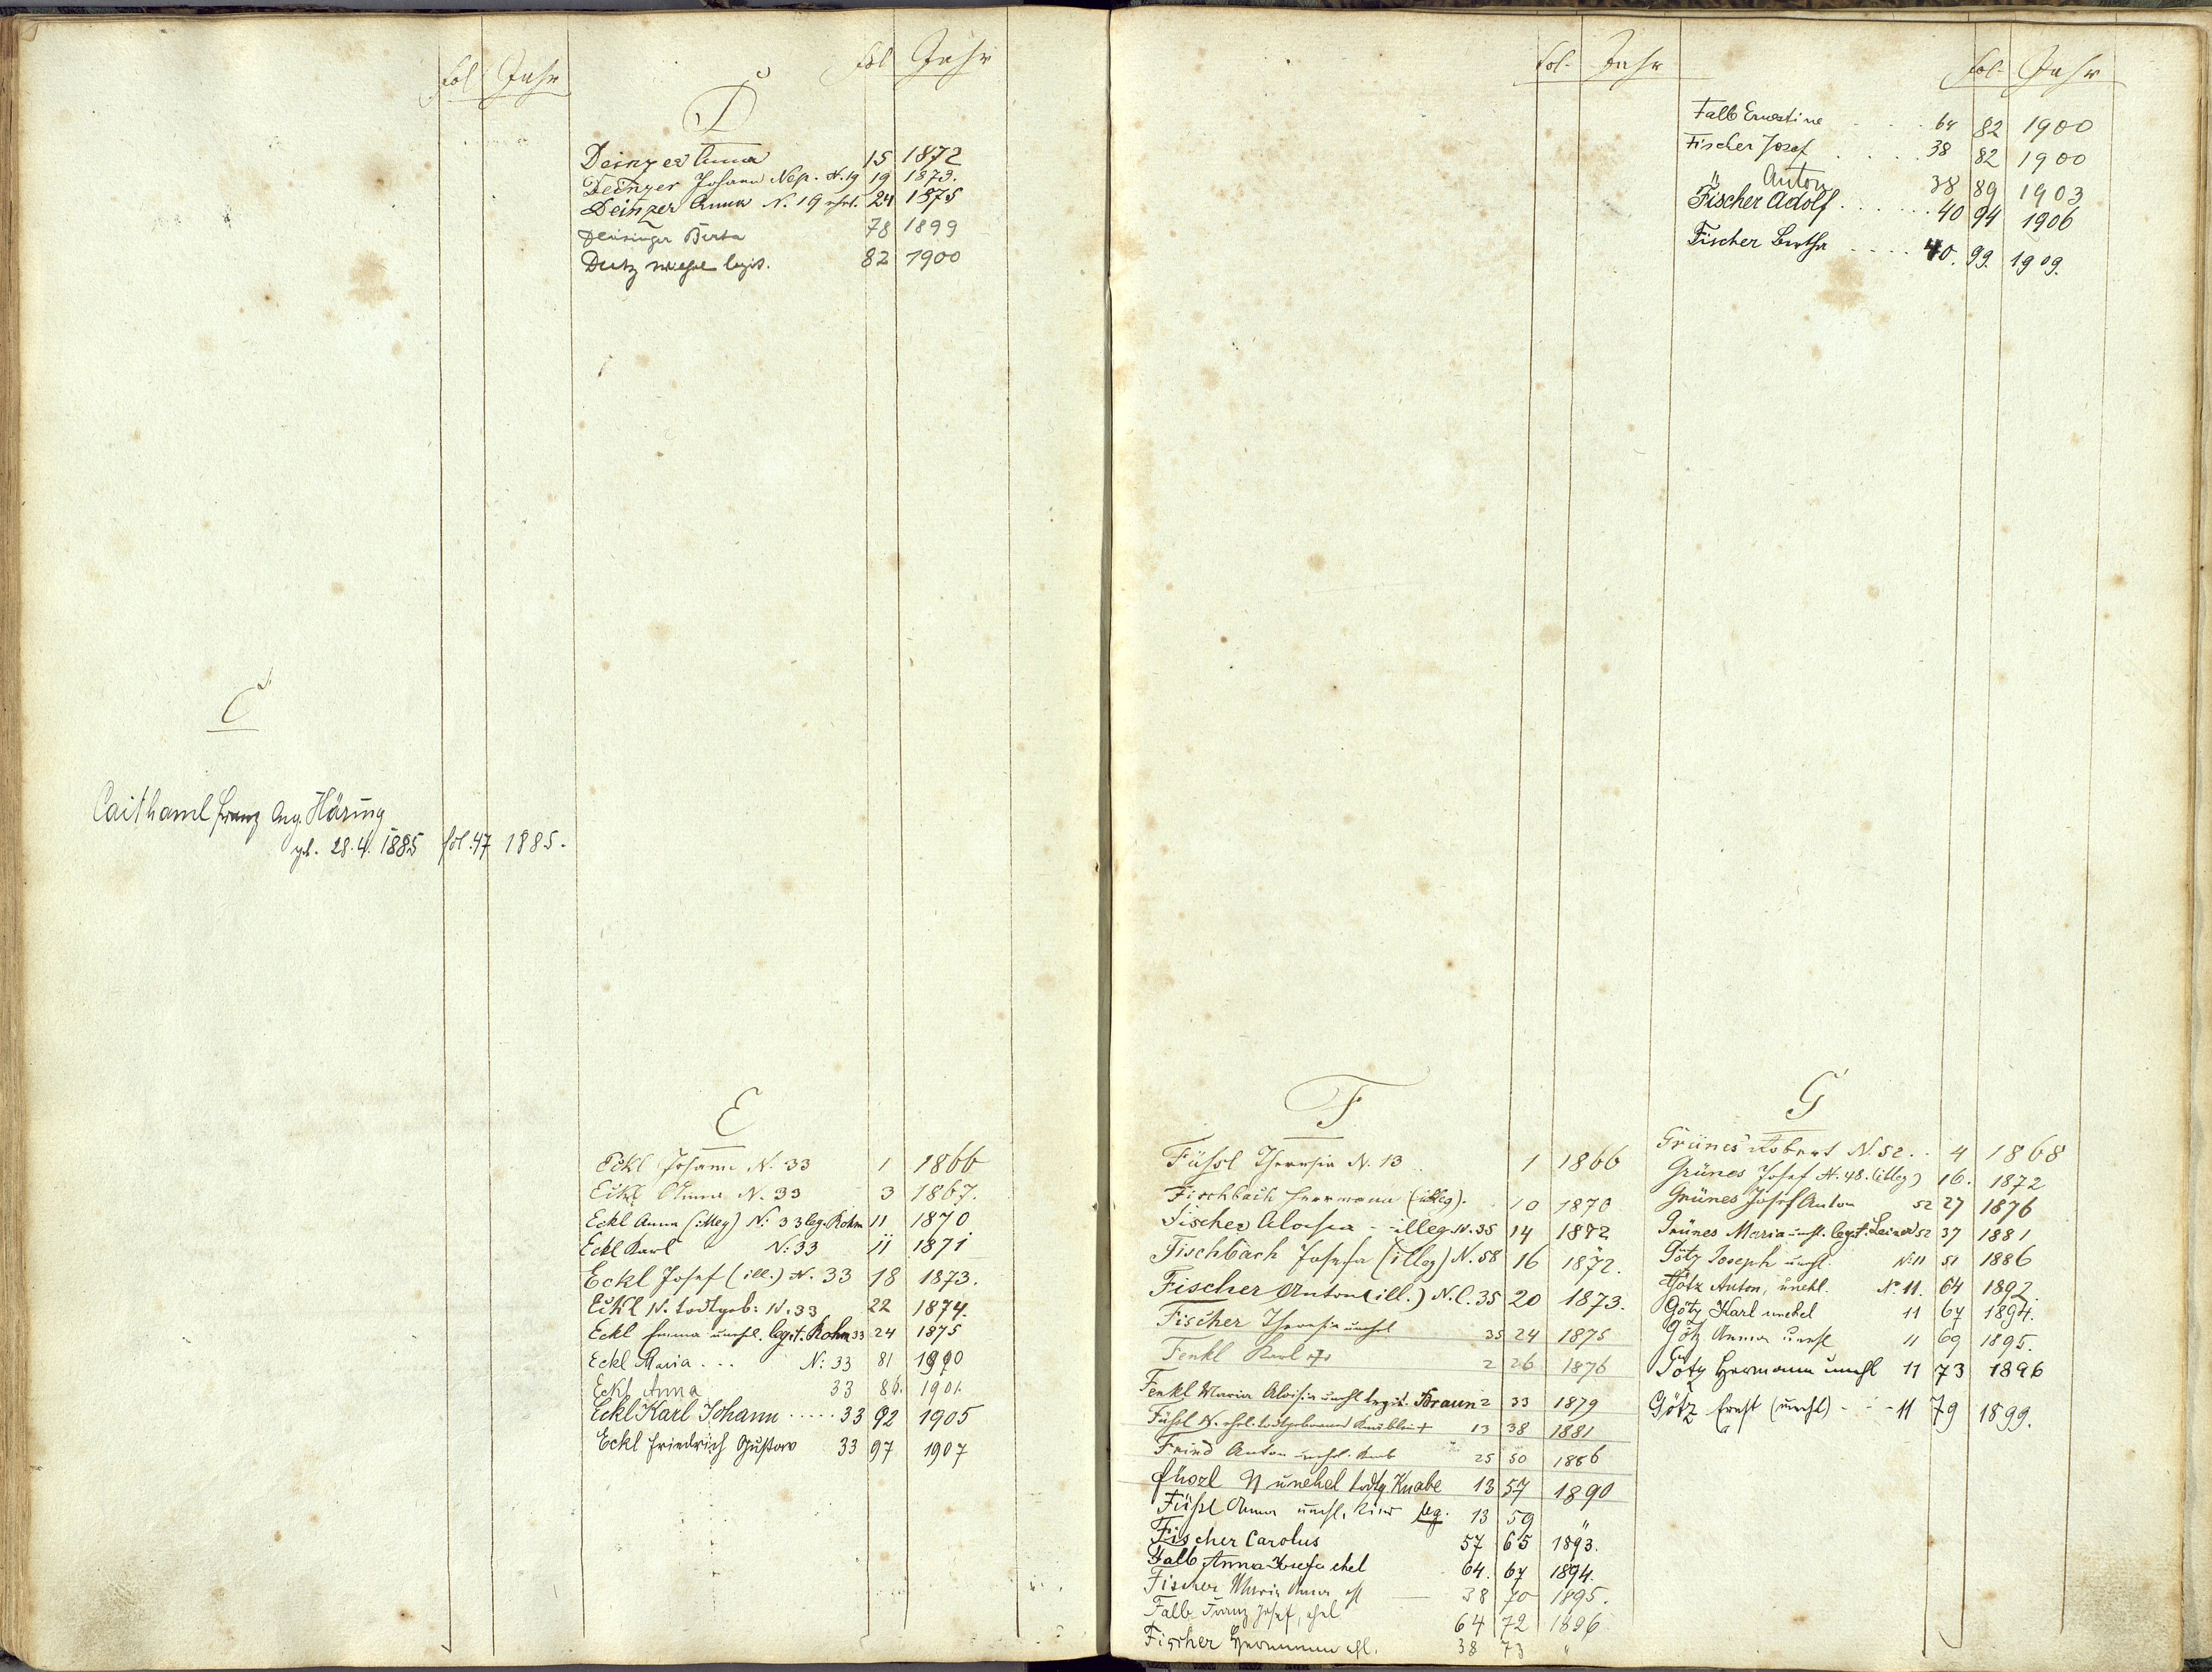 fol Jahr
C
Caithaml Franz Aug. Häring
geb. 28.4. 1885 fol. 47 1885.
fol Jahr
D
Deinzer Anna 15 1872
Deinzer Johann Nep. N. 19 19 1873.
Deinzer Anna N. 19 ehel. 24 1875
Berta 78 1899
Dutz legit. 82 1900
E
Eckl Johann N. 33 1 1866
Eckl Anna N. 33 3 1867.
Eckl Anna (illeg) N: 33 leg. Rohm 11 1870
Eckl Karl N: 33 11 1871
Eckl Josef (ill.) N. 33 18 1873.
Eckl N. todtgeb: N. 33 22 1874.
Eckl Emma unehl. legit. Rohm 33 24 1875
Eckl Maria . . . N: 33 81 1900
Eckl Anna 33 86. 1901.
Eckl Karl Johann . . . . . 33 92 1905
Eckl Friedrich Gustav 33 97 1907
fol. Jahr
F
Füßl Theresia N. 13 1 1866
Fischbach Herrmann (illeg). 10 1870
Fischer Aloisia - illeg. N. 35 14 1872
Fischbach Josefa (illeg) N. 58 16 1872.
Fischer Anton (ill.) N. C. 35 20 1873.
Fischer Theresia unehel 35 24 1875
Fenkl Karl 2 26 1876
Fenkl Maria Aloisia unehl legit. Braun 2 33 1879
Füßl N. ehel. todtgeborenes Knäblein + 13 38 1881
Frind Anton unehel. Knab 25 50 1886
Füssl N unehel todtg Knabe 13 57 1890
Füßl Anna unehl. Kind leg. 13 59 "
Fischer Carolus 57 65 1893.
Falb Anna Josefa ehel 64. 67 1894.
Fischer Maria Anna ehl 38 70 1895.
Falb Franz Josef, ehel 64 72 1896
Fischer Hermann ehl. 38 73 "
fol. Jahr
Falb Ernestine . . . 64 82 1900
Fischer Josef . . . . 38 82 1900
" Anton 38 89 1903
Fischer Adolf . . . . . . 40 94 1906
Fischer Bertha . . . . 40. 99. 1909.
G
Grünes Robert N. 52. . 4 1868
Grünes Josef N. 48. (illeg) 16. 1872
Grünes Josef Anton 52 27 1876
Grünes Maria unehl. legit. 52 37 1881
Götz Joseph unehl. N: 11 51 1886
Götz Anton, unehl. No 11. 64 1892.
Götz Karl unehel 11 67 1894.
Götz Anna unehl 11 69 1895.
Götz Hermann unehl 11 73 1896
Götz Ernst (unehl) - - - 11 79 1899.